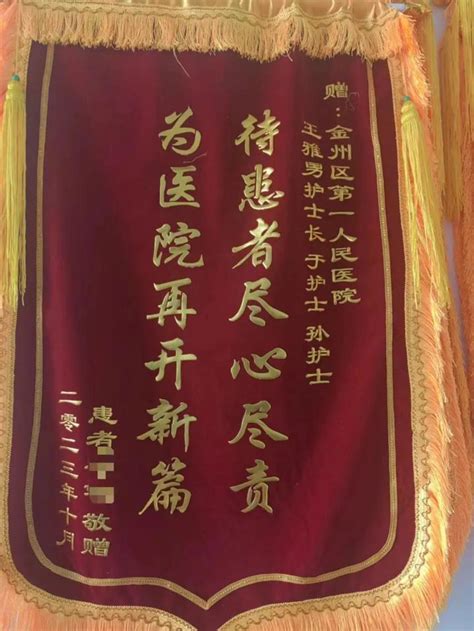 赠：金州区第一人民医院
王雅男护士长 于护士 孙护士
待患者尽心尽责
为医院再开新篇
患者 敬赠
二零二三年十月